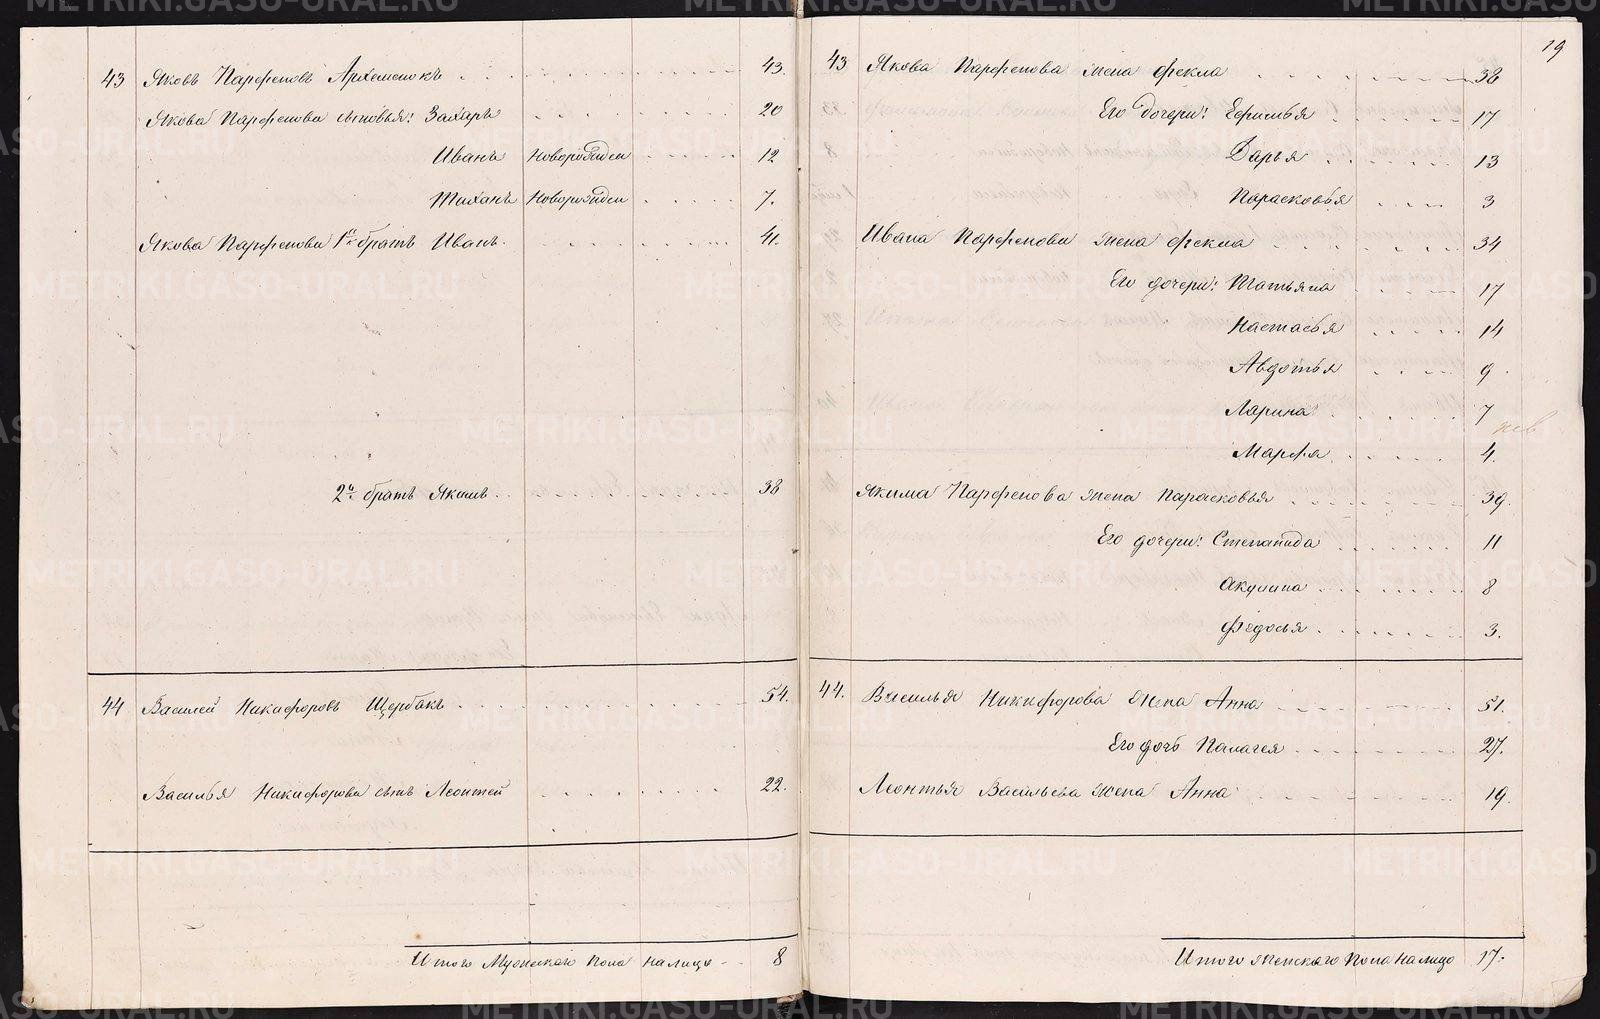 43 Яковъ Парфеновъ Артеменокъ 43.
Якова Парфенова сыновья: Захаръ 20
Иванъ Новорожден 12
Тиханъ Новорожден 7.
Якова Парфенова 1й братъ Иванъ. 41.
2й братъ Якимъ 38
44 Василей Никифоровъ Щербакъ 54.
Василья Никифорова сынъ Леонтей 22.
Итого Мужеска пола налицо 8
19
43 Якова Парфенова жена Фекла 38
Его дочери: Ефимья 17
Дарья 13
Парасковья 3
Ивана Парфенова жена Фекла 34
Его дочери: Татьяна 17
Настасья 14
Авдотья 9
Ларина 7
Марфа 4.
Якима Парфенова жена Парасковья 39.
Его дочери: Степанида 11
Акулина 8
Федосья 3.
44. Василья Никифорова жена Анна 51.
Его дочь Палагея 27.
Леонтья Васильева жена Анна 19.
Итого женскаго пола налицо 17.
METRIKI.GASO-URAL.RU